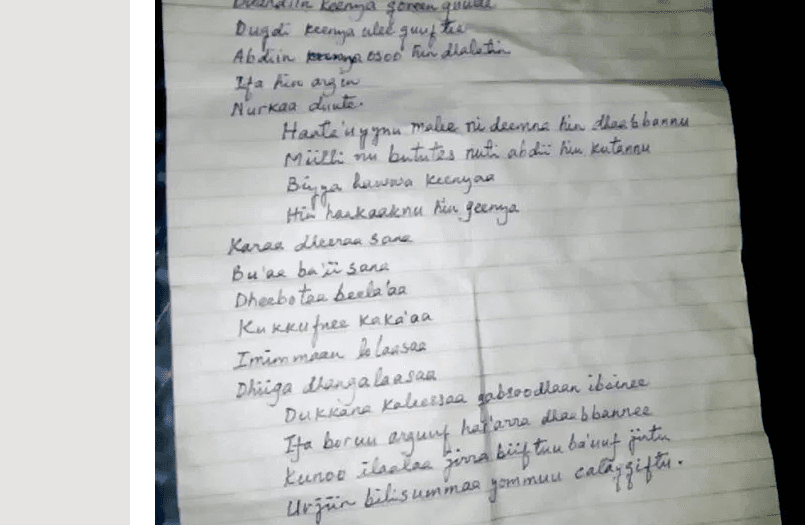 keenya goreen guute
Dugdi keenya ulee guuftee
Abdiin osoo hin dhalatin
Ifa hin argin
Nurkaa duute.
Haata'uyynu malee ni deemna hin dhaabbannu
Miilli nu bututes nuti abdii hin kutannu
Biyya hawwa keenyaa
Hin haakaaknu hin geenya
Karaa dheeraa sana
Bu'aa ba'ii sana
Dheebotaa beela'aa
Kukkufnee kaka'aa
Imimmaan lolaasaa
Dhiiga dhangalaasaa
Dukkana kaleessaa qabsoodhaan ibsinee
Ifa boruu arguuf har'arra dhaabbannee
Kunoo ilaalaa jirra biiftuu ba'uuf jintu
Urjiin bilisummaa yommuu calaqqiftu.